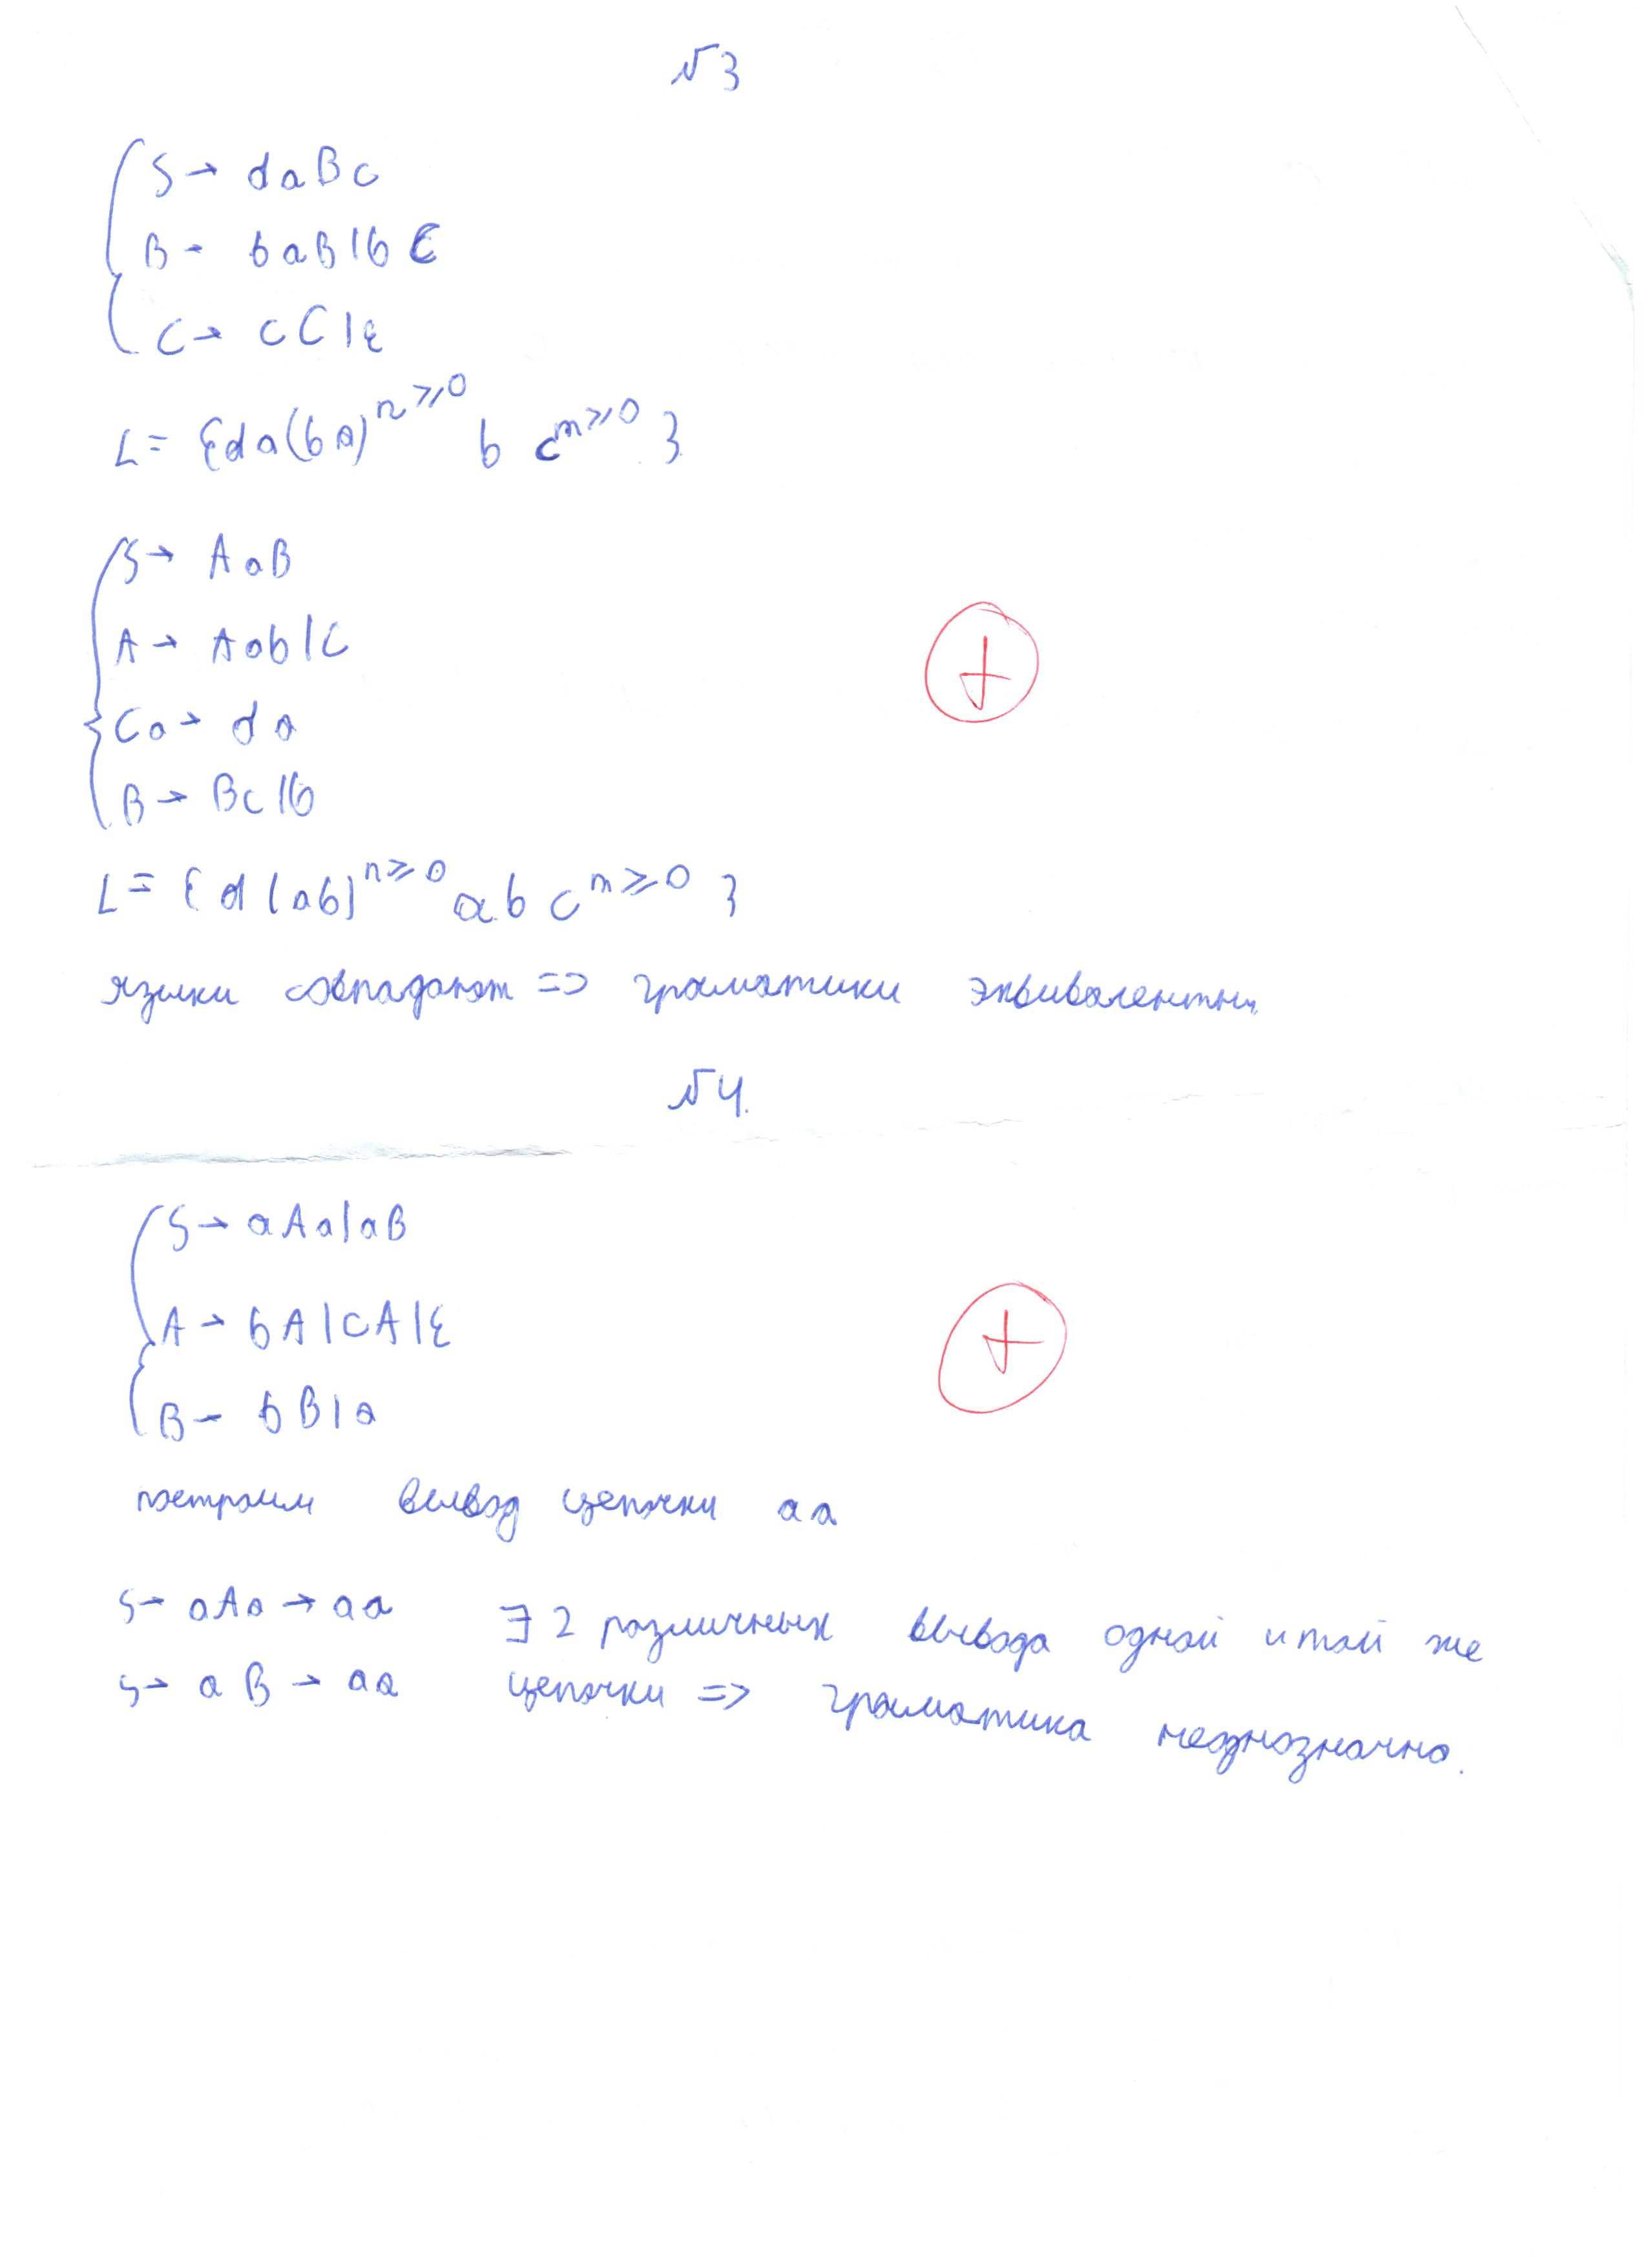 √3
S → daBc
B → baB|bC
C → cC|ε
L = {da(ba)^n≥0 b c^m≥0 }
S → AaB
A → Aab|C
Ca → da
B → Bc|b
L = {d(ab)^n≥0 ab c^m≥0 }
языки совпадают => граматики эквивалентны
√4.
S → aAa|aB
A → bA|cA|ε
B → bB|a
построим вывод цепочки aa
S → aAa → aa ∃ 2 различных вывода одной и той же
S → aB → aa цепочки => граматика неоднозначна.